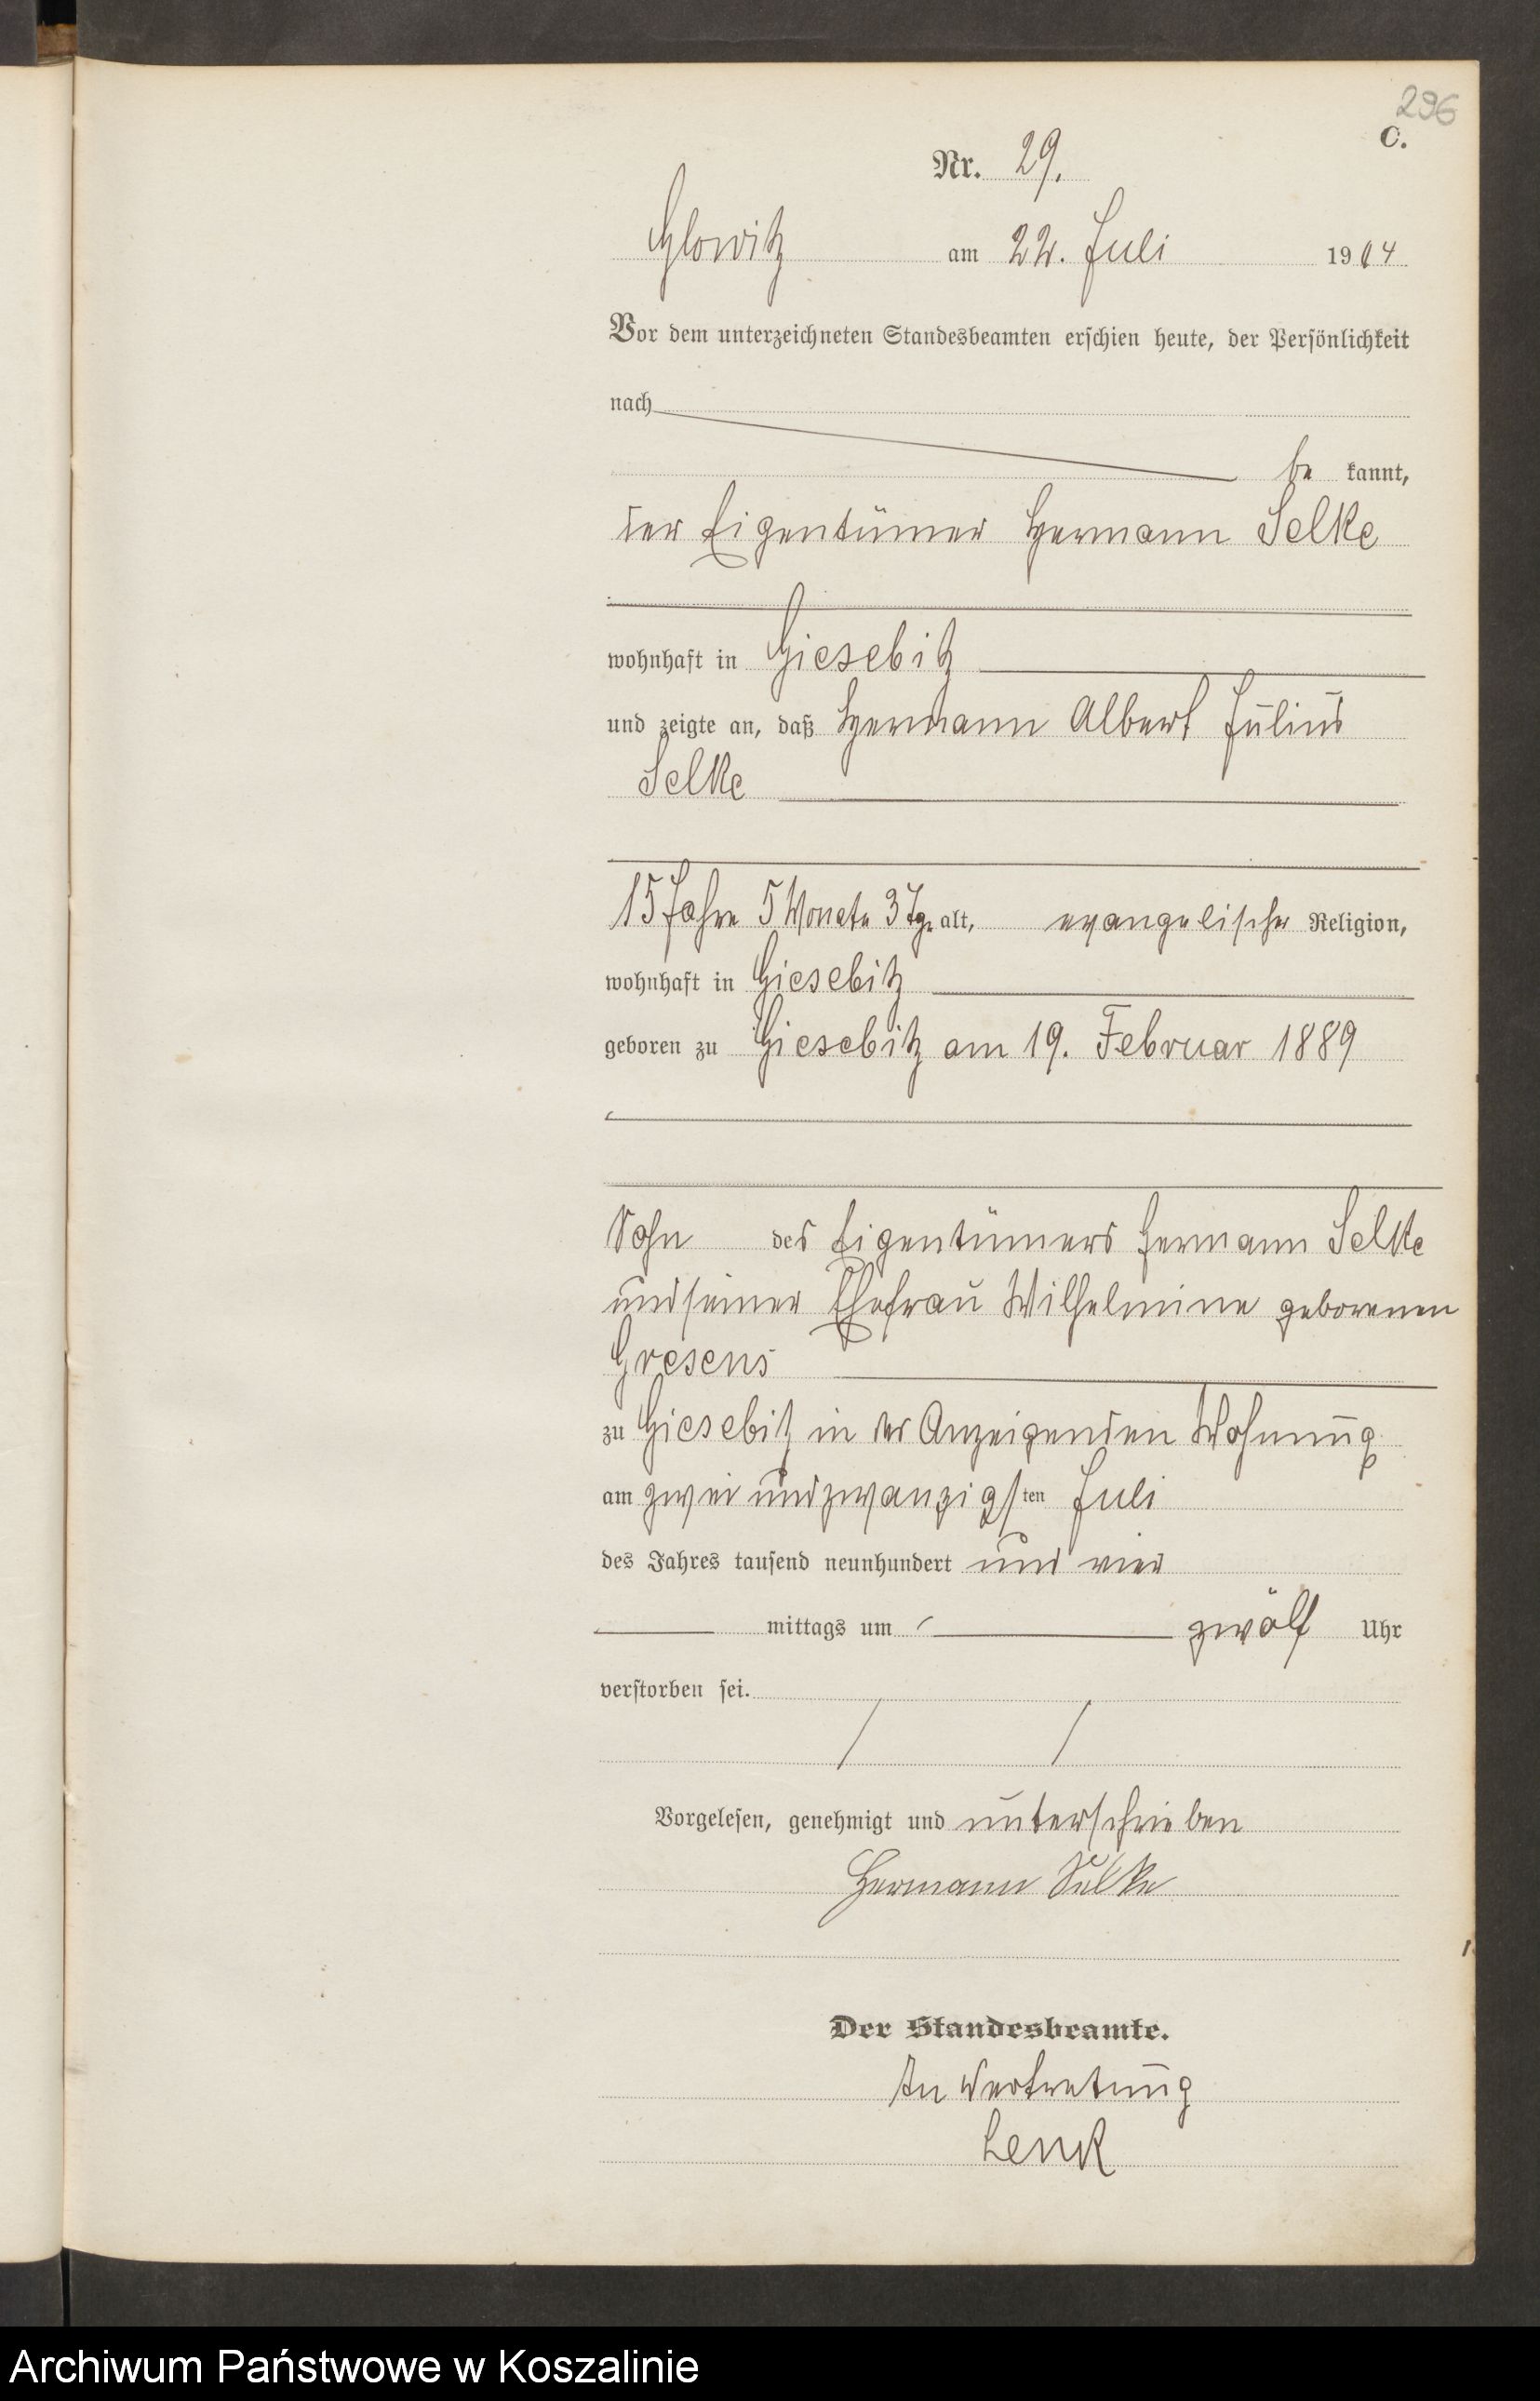 296
C.
Nr. 29.
Glowitz am 22. Juli 1904
Vor dem unterzeichneten Standesbeamten erschien heute, der Persönlichkeit
nach
be kannt,
der Eigentümer Hermann Selke
wohnhaft in Giesebitz
und zeigte an, daß Hermann Albert Julius
Selke
15 Jahre 5 Monate 3 Tge alt, evangelischer Religion,
wohnhaft in Giesebitz
geboren zu Giesebitz am 19. Februar 1889
Sohn des Eigentümers Hermann Selke
und seiner Ehefrau Wilhelmine geborenen
Gresens
zu Giesebitz in des Anzeigenden Wohnung
am zwei und zwanzigsten Juli
des Jahres tausend neunhundert und vier
mittags um zwölf Uhr
verstorben sei.
Vorgelesen, genehmigt und unterschrieben
Hermann Selke
Der Standesbeamte.
In Vertretung
Lenk
Archiwum Państwowe w Koszalinie